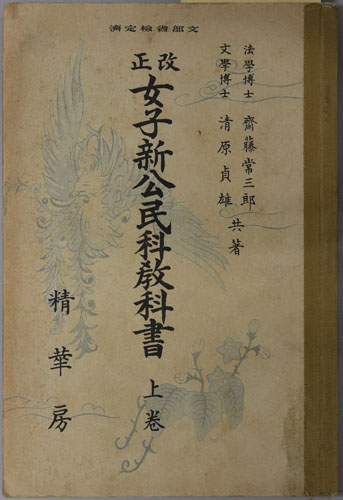 文部省檢定濟
法學博士 齋藤常三郎
文學博士 清原貞雄
共著
改正
女子新公民科敎科書 上卷
精華房